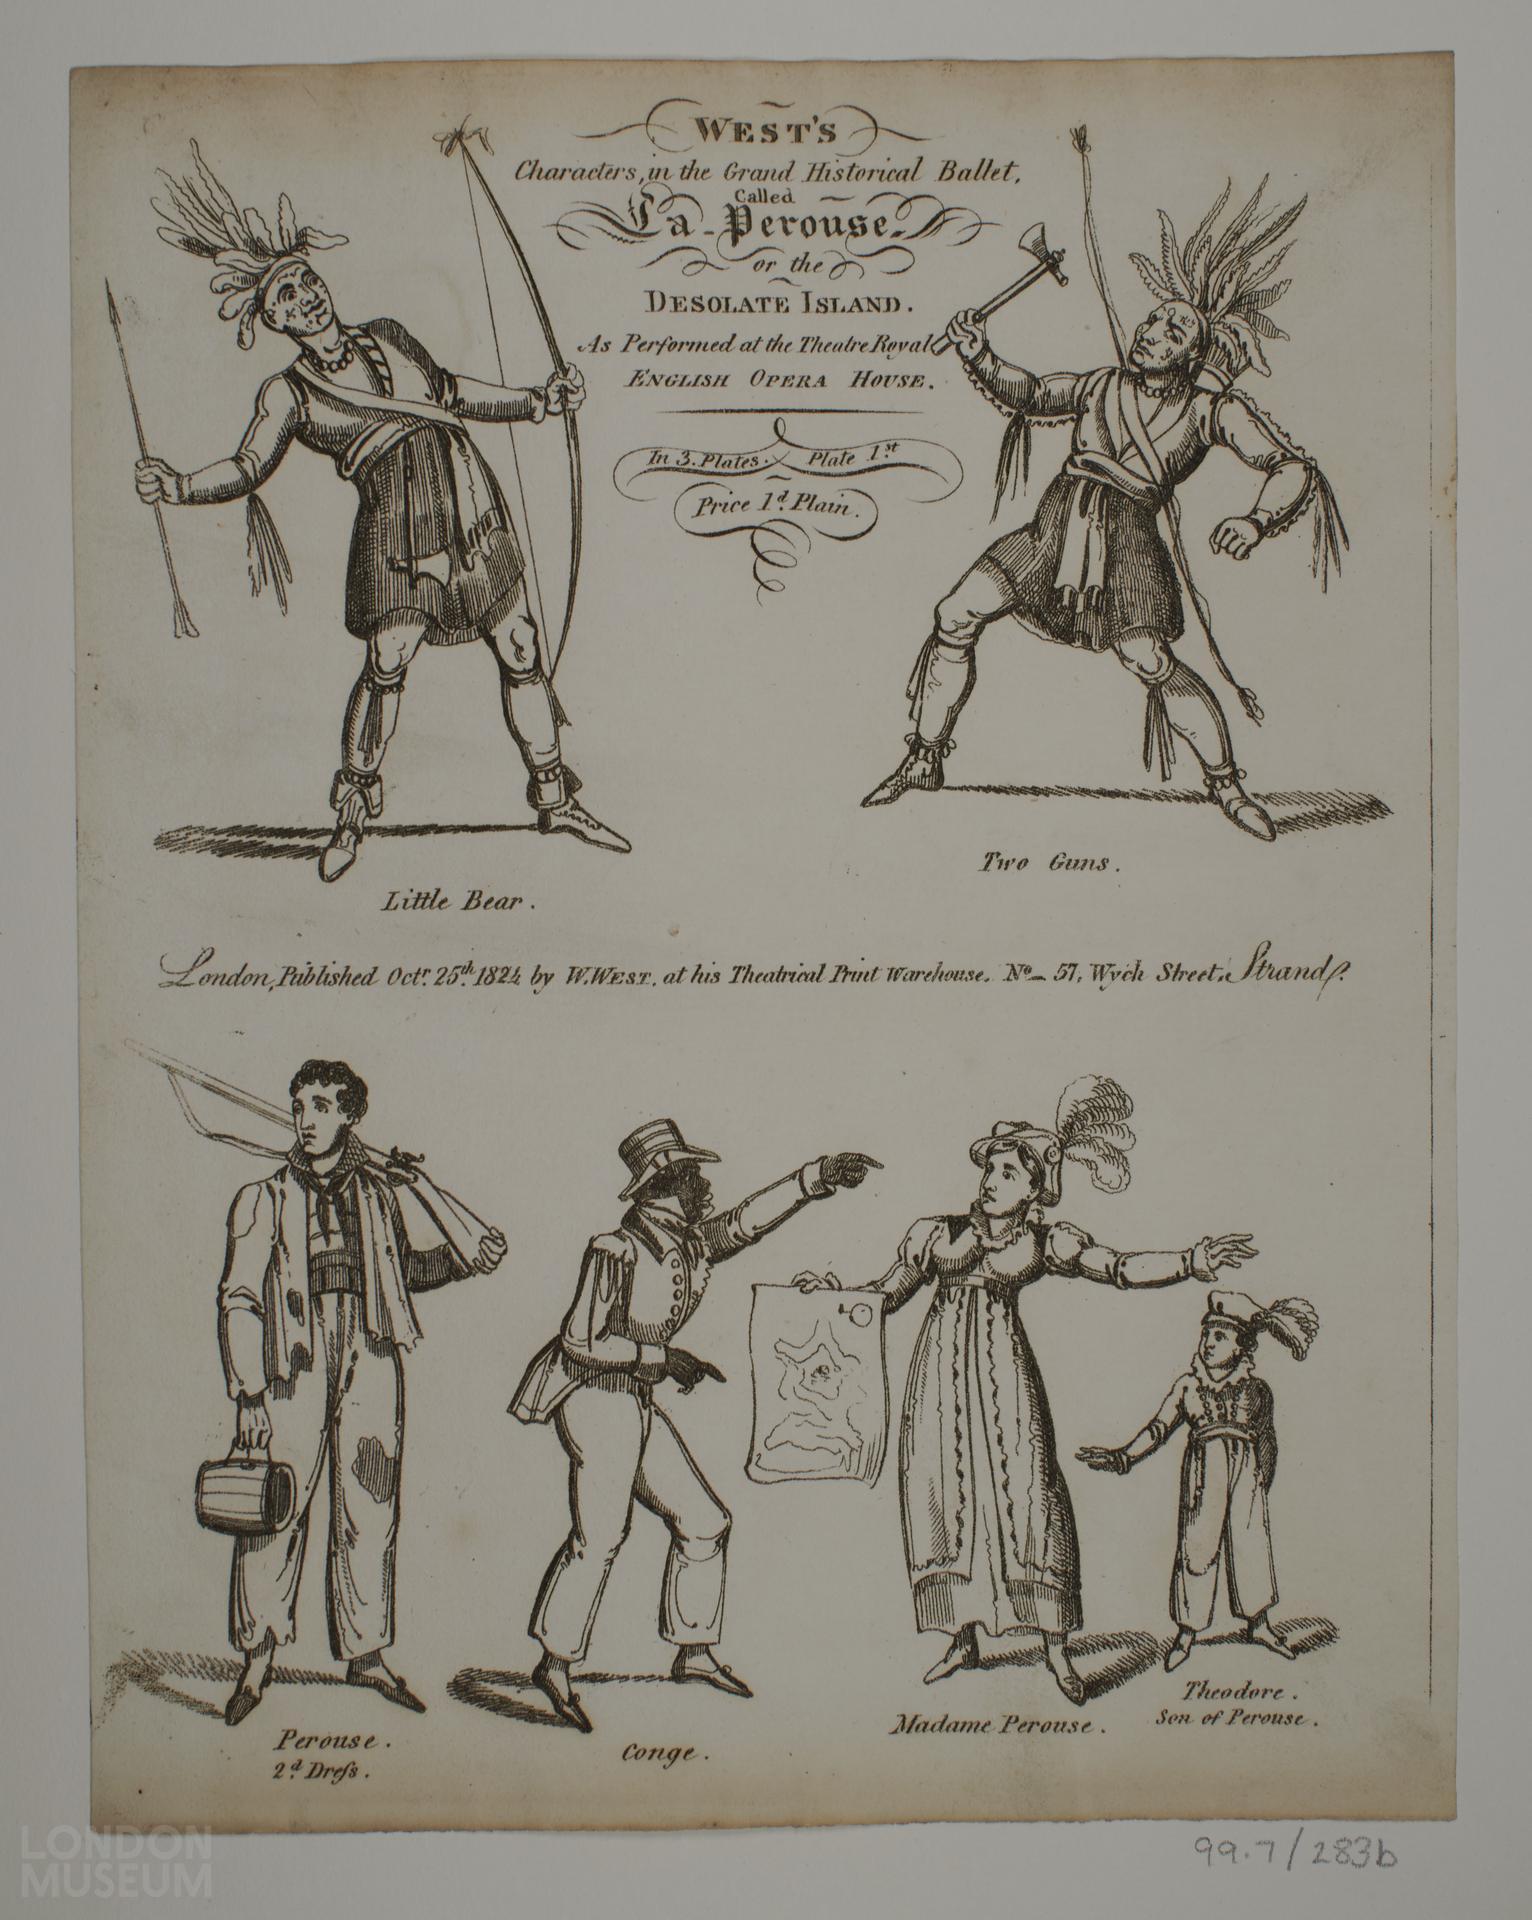 WEST'S
Characters, in the Grand Historical Ballet,
Called
La-Perouse.
or the
DESOLATE ISLAND.
As Performed at the Theatre Royal
ENGLISH OPERA HOUSE.
In 3. Plates. Plate 1st
Price 1d. Plain.
Two Guns.
Little Bear.
London, Published Octr. 25th. 1824 by W. WEST. at his Theatrical Print Warehouse. No- 57, Wych Street, Strand.
Theodore.
Son of Perouse.
Madame Perouse.
Perouse.
2d. Dreſs.
Conge.
LONDON
MUSEUM
99.7/283b